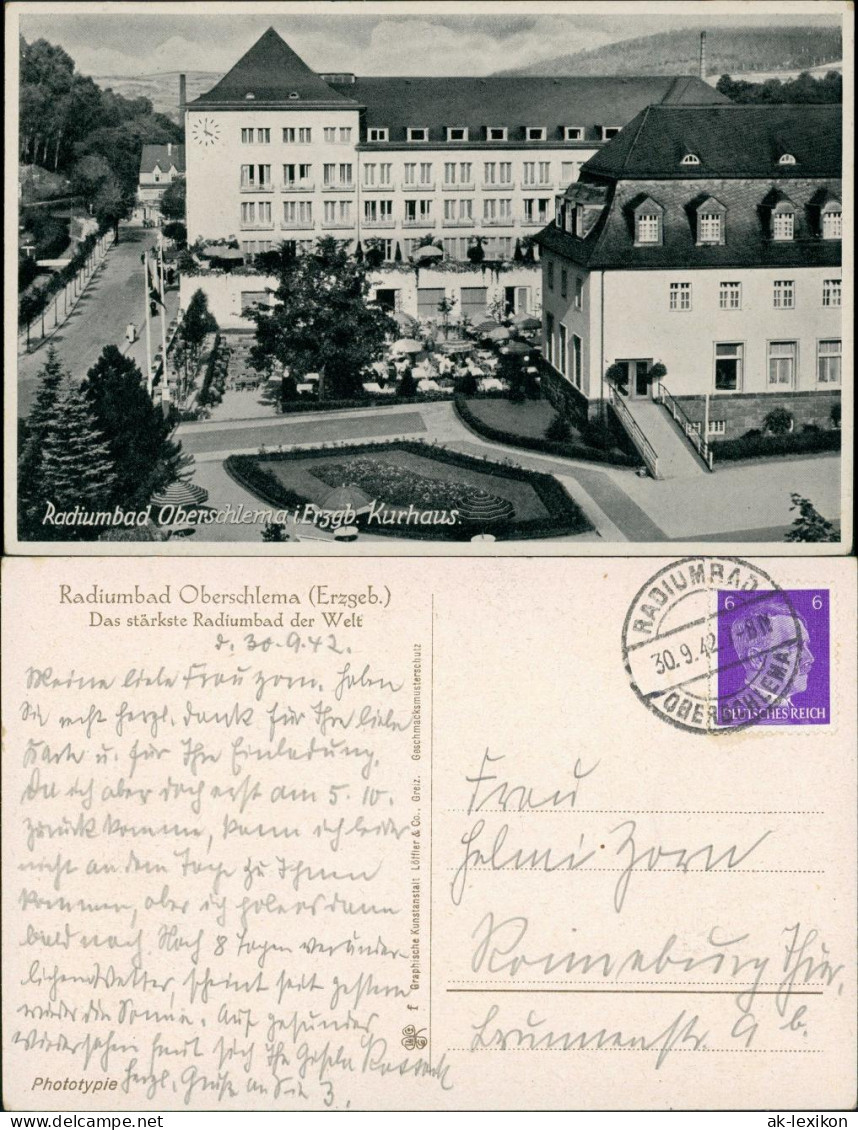 Radiumbad Oberschlema i. Erzgb. Kurhaus.
Radiumbad Oberschlema (Erzgeb.)
Das stärkste Radiumbad der Welt
d. 30.9.42.
Meine liebe Frau Zorn. Haben
Sie recht herzl. Dank für Ihre liebe
Karte u. für Ihre Einladung.
Da ich aber doch erst am 5.10.
zurück komme, kann ich leider
nicht an dem Tage zu Ihnen
kommen, aber ich hole es dann
bald nach. Nach 8 Tagen veränder-
lichem Wetter, scheint seit gestern
wieder die Sonne. Auf gesundes
Wiedersehen freut sich Ihre Gisela
Herzl. Grüße an Sie 3.
Phototypie
f Graphische Kunstanstalt Löffler & Co., Greiz. Geschmacksmusterschutz
RADIUMBAD
30.9.42
-8N
OBERSCHLEMA
6 6
DEUTSCHES REICH
Frau
Helmi Zorn
Ronneburg Thür.
Brunnenstr. 9 b.
ak-lexikon.com